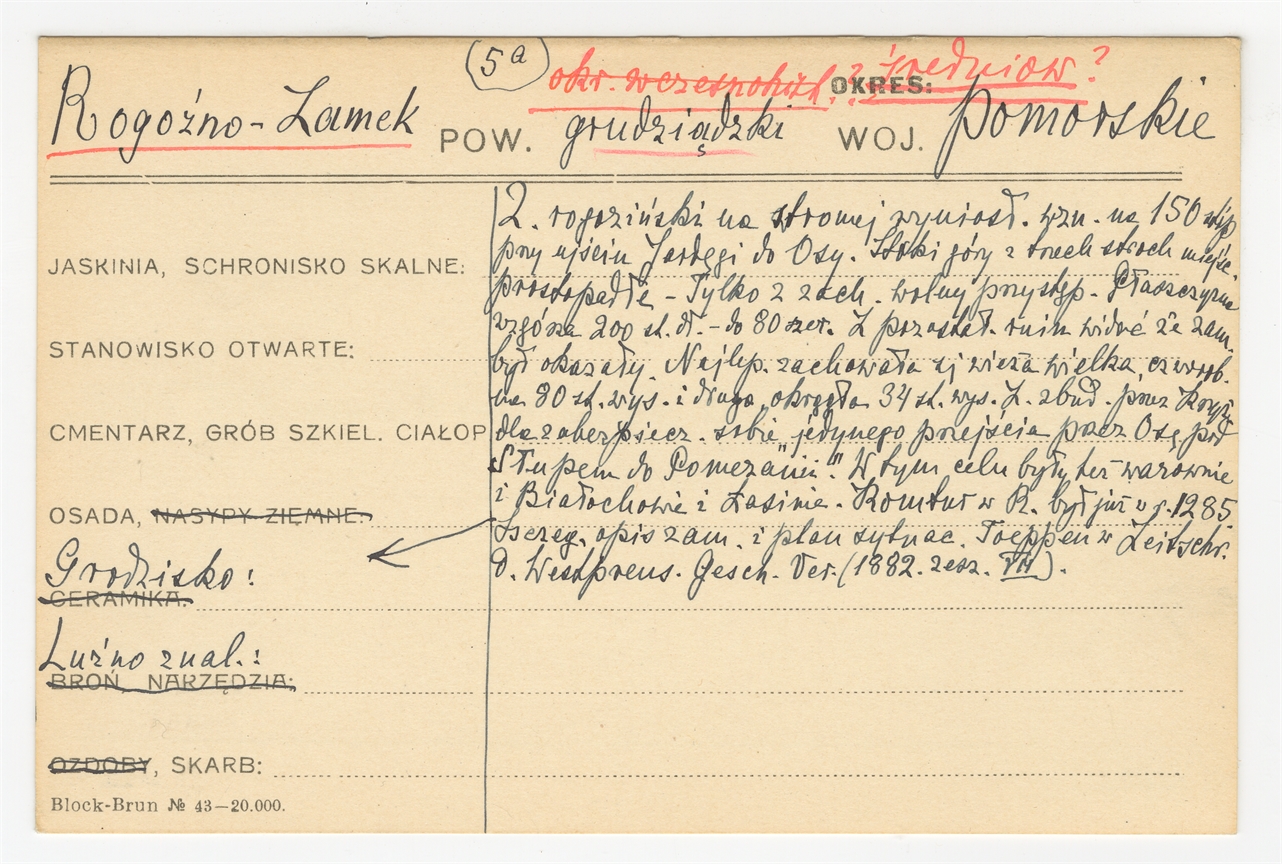 5a
okr. wczesnohist.?? średniow?
OKRES:
Rogoźno-Zamek POW. grudziądzki WOJ. pomorskie
Z. rogoziński na stromej wyniosł. wzn. na 150 st.
przy ujściu Gardęgi do Osy. Stoki góry z trzech stron miejsc.
prostopadłe - Tylko z zach. wolny przystęp. Płaszczyzna
wzgórza 200 st. dł. - do 80 szer. Z pozostał. ruin widać że zam.
był okazały. Najlep. zachowała się wieża wielka, czworob.
na 80 st. wys. i druga, okrągła 34 st. wys. Z. zbud. przez Krzyż.
dla zabezpiecz. sobie "jedynego przejścia przez Osę pod
Słupem do Pomezanii". W tym celu były też warownie
i Białochowie i Łasinie. Komtur w R. był już w r. 1285
Szczeg. opis zam. i plan sytuac. Toeppen w Zeitschr.
d. Westpreus. Gesch. Ver. (1882. zesz. VII).
JASKINIA, SCHRONISKO SKALNE:
STANOWISKO OTWARTE:
CMENTARZ, GRÓB SZKIEL. CIAŁOP
OSADA, NASYPY ZIEMNE:
Grodzisko:
CERAMIKA:
Luźno znal.:
BROŃ NARZĘDZIA:
OZDOBY, SKARB:
Block-Brun № 43—20.000.